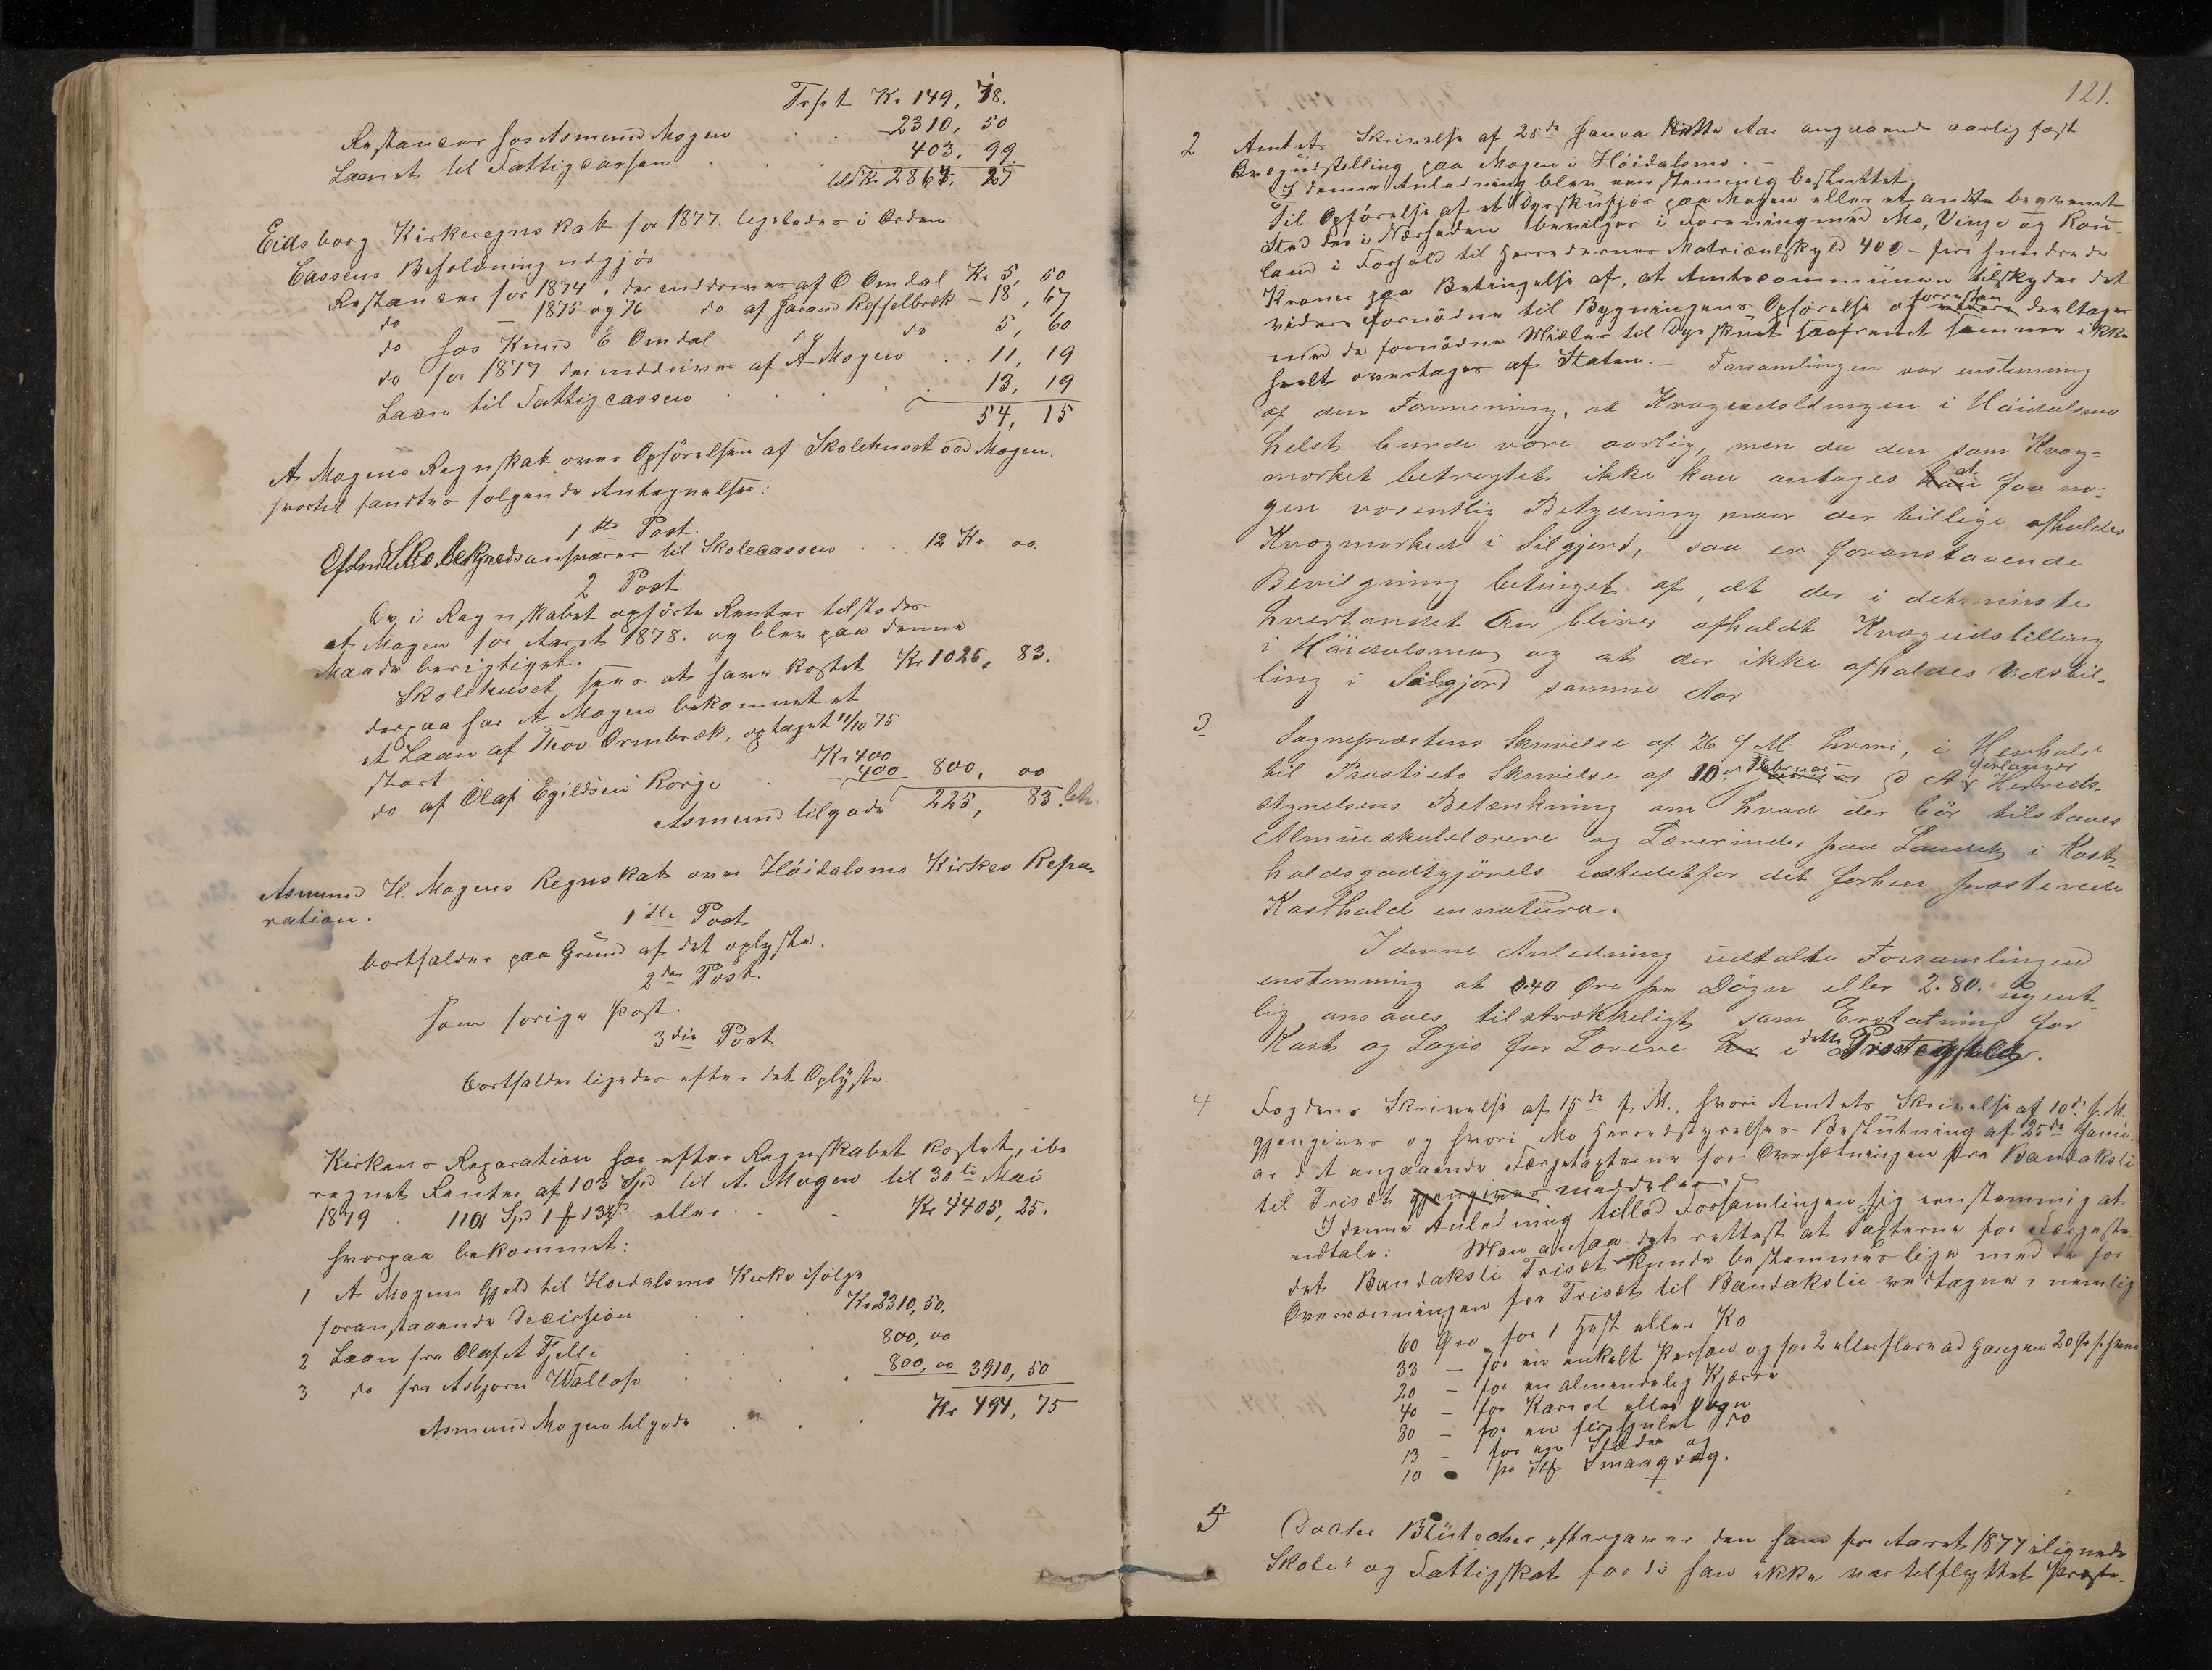 Trpt Kr 149, 78.
Restancer hos Asmund Mogen . . - 2310, 50
Laant til Fattigcassen . . . 403, 99.
tils Kr 2864, 27
Eidsborg Kirkeregnskab for 1877. legtedes i Orden
Cassens Beholdning udgjør
Restancer for 1874, der inddrives af O Omdal Kr 5, 50
do – 1875 og 76 do af Halvand Reffelbrek – 18, 67
do hos Knud E Omdal do 5, 60
do for 1877 der inddrives af A Mogen . . 11, 19
Laan til Fattigcassen . . . . . 13, 19
54, 15
A Mogens Regnskab over Opførelsen af Skolehuset ved Mogen.
hvortil fandtes følgende Antegnelser:
1ste Post.
til Skolecassen . . 12 Kr 00.
2 Post
De i Regnskabet opførte Renter tilstodes
A Mogen for Aaret 1878. og blev paa denne
Maade berigtiget.
Skolehuset sees at have kostet Kr 1025, 83.
derpaa har A Mogen bekommet et
et Laan af Thov Ormbrek, optaget 11/10 75
stort Kr 400
do af Olaf Egildsen Rorge . 400 800, 00
Asmund tilgode 225, 83. bet.
Asmund H. Mogens Regnskab over Høidalsmo Kirkes Repa-
ration.
1ste Post
bortfalder paa Grund af det oplyste.
2den Post.
Som forige Post.
3die Post
Bortfalder ligedes efter det Oplyste.
Kirkens Reparation har efter Regnskabet kostet, ibe
regnet Renter af 103 Spd til A Mogen til 30te Mai
1879 . 1101 Spd 1 ƒ 13 ß eller . . Kr 4405, 25.
hvorpaa bekommet:
1 A Mogens Gjeld til Høidalsmo Kirke ifølge
foranstaaende Decission . . Kr 2310, 50.
2 Laan fra Olaf A Fjelli . . 800, 00
3 do fra Asbjørn Wallop . . . . 800, 00 3910, 50
Asmund Mogen tilgode . . . Kr 494, 75
121.
2 Amtets Skrivelse af 25de Januar dette Aar angaaende aarlig fast
Qvægudstilling paa Mogen i Høidalsmo. –
I denne Anledning blev eenstemmig besluttet
Til Opførelse af et Dyrskuefjøs paa Mogen eller et andet beqvemt
Sted der i Nærheden bevilges i Forening med Mo, Vinje og Rau-
land i Forhold til Herredernes Matriculskyld 400 – fire hundrede
Kroner paa Betingelse af, at Amtscommunen tilskyder det
videre fornødne til Bygningens Opførelse og forresten deeltager
med de fornødne Midler til Dyrskuet saafremt samme ikke
heelt overtages af Staten. – Forsamlingen var enstemmig
af den Formening, at Kvægudstillingen i Höidalsmo
helst burde være aarlig, men da den som Kvæg=
mærket betragtet ikke kan antages at faa no-
gen væsentlig Betydning naar der tillige afholdes
Kvægmarked i Silgjord, saa er foranstaaende
Bevilgning betinget af, at der i det minste
hvertandet Aar bliver afholdt Kvægudstilling
i Höidalsmo og at der ikke afholdes Udstil-
ling i Silgjord samme Aar
3 Sognepræstens Skrivelse af 26 f M. hvori, i Henhold
til Provstiets Skrivelse af 10de Februar d A. forlanges Herreds-
styrelsens Betænkning om hvad der bör tilstaaes
Almueskolelærere og Lærerinder paa Landet i Kost-
holdsgodtgjörels istedetfor det forhen præsterede
Kosthold in natura.
I denne Anledning udtalte Forsamlingen
enstemmig at 0.40 Øre pr Dögn eller 2.80. ugent-
lig ansaaes tilstrækkeligt som Erstatning for
Kost og Logis for Lærere i dette Præstegjeld.
4 Fogdens Skrivelse af 15de f. M., hvori Amtets Skrivelse af 10de f. M.
gjengives og hvori Mo Herredstyrelses Beslutning af 25de Janu-
ar d A angaaende Færgetaxterne for Oversætningen fra Bandaksli
til Trisæt gjengives meddeles.
I denne Anledning tillod Forsamlingen sig eenstemmig at
udtale: Man ansaa det rettest at Taxterne for Færgeste-
det Bandaksli Trisæt kunde bestemmes lige med de for
Overroningen fra Trisæt til Bandakslie vedtagne, nemlig
60 Øre for 1 Hest eller Ko
33 – for en enkelt Person og for 2 eller flere ad Gangen 20 Ør pr hver
20 – for en almindelig Kjærre
40 – for Karjol eller Vogn
80 – for en firehjulet do
13 – for en Slæde og
10 – pr Stk Smaaqvæg.
5 Doctor Blütecher eftergaves den ham for Aaret 1877 ilignede
Skole- og Fattigskat fordi han ikke var tilflyttet Præste-